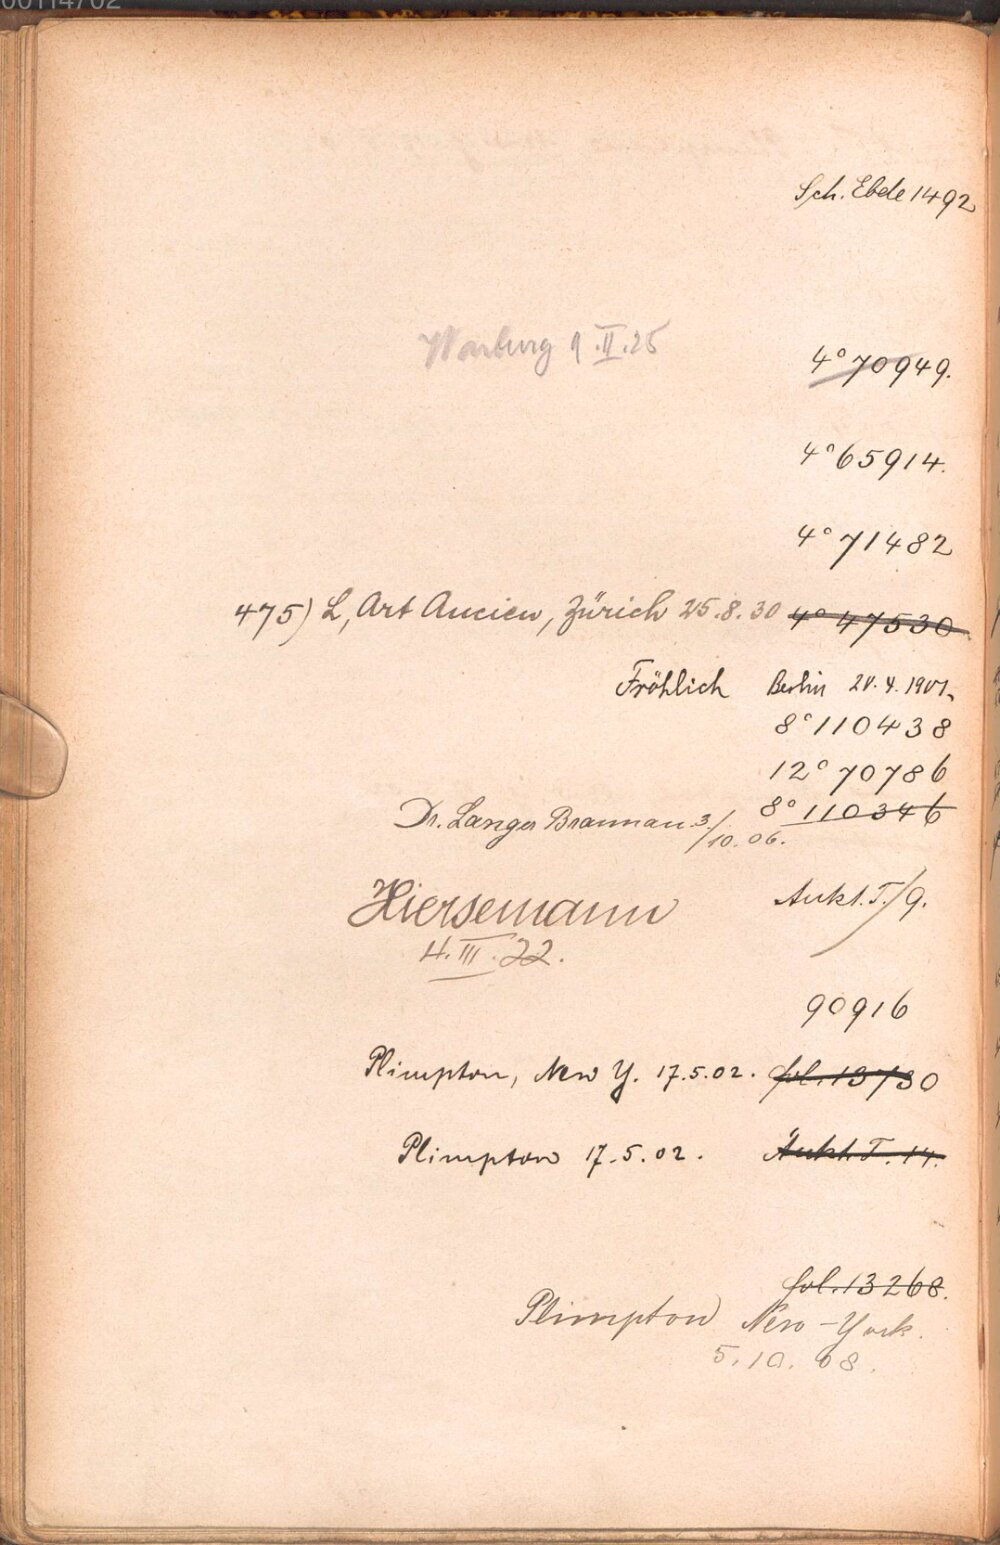 00114702
Sch. Ebde 1492
Warburg 9.II.25
4° 70949.
4° 65914.
4° 71482
475) L, Art Ancien, Zürich 25.8.30 4° 47530
Fröhlich Berlin 24.4.1901.
8° 110438
12° 70786
8° 110346
Dr. Langer Braunau 3/10.06.
Aukt. T./9.
Hiersemann
4.III.22.
90916
Plimpton, New Y. 17.5.02. fol. 13730
Plimpton 17.5.02. Aukt. T. 14.
fol. 13268.
Plimpton New-York.
5.10.08.